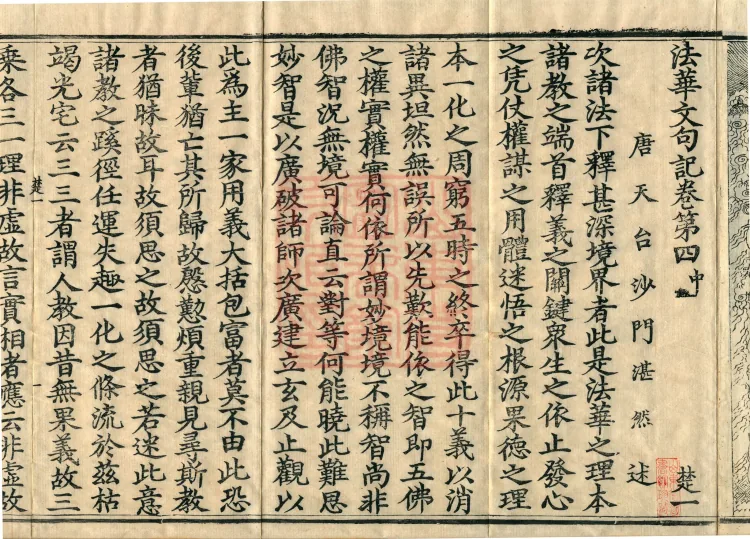 法華文句記卷第四中
楚一
唐天台沙門湛然述
次諸法下釋甚深境界者此是法華之理本
諸教之端首釋義之關鍵衆生之依止發心
之凭仗權謀之用體迷悟之根源果德之理
本一化之周窮五時之終卒得此十義以消
諸異坦然無誤所以先歎能依之智即五佛
之權實權實何依所謂妙境境不稱智尚非
佛智況無境可論直云對等何能曉此難思
妙智是以廣破諸師次廣建立玄及止觀以
此為主一家用義大括包富者莫不由此恐
後輩猶亡其所歸故慇懃煩重親見尋斯教
者猶昧故耳故須思之故須思之若迷此意
諸教之蹊徑任運失趣一化之條流於茲枯
竭光宅云三三者謂人教因昔無果義故三
楚一
乘各三一理非虛故言實相者應云非虛故